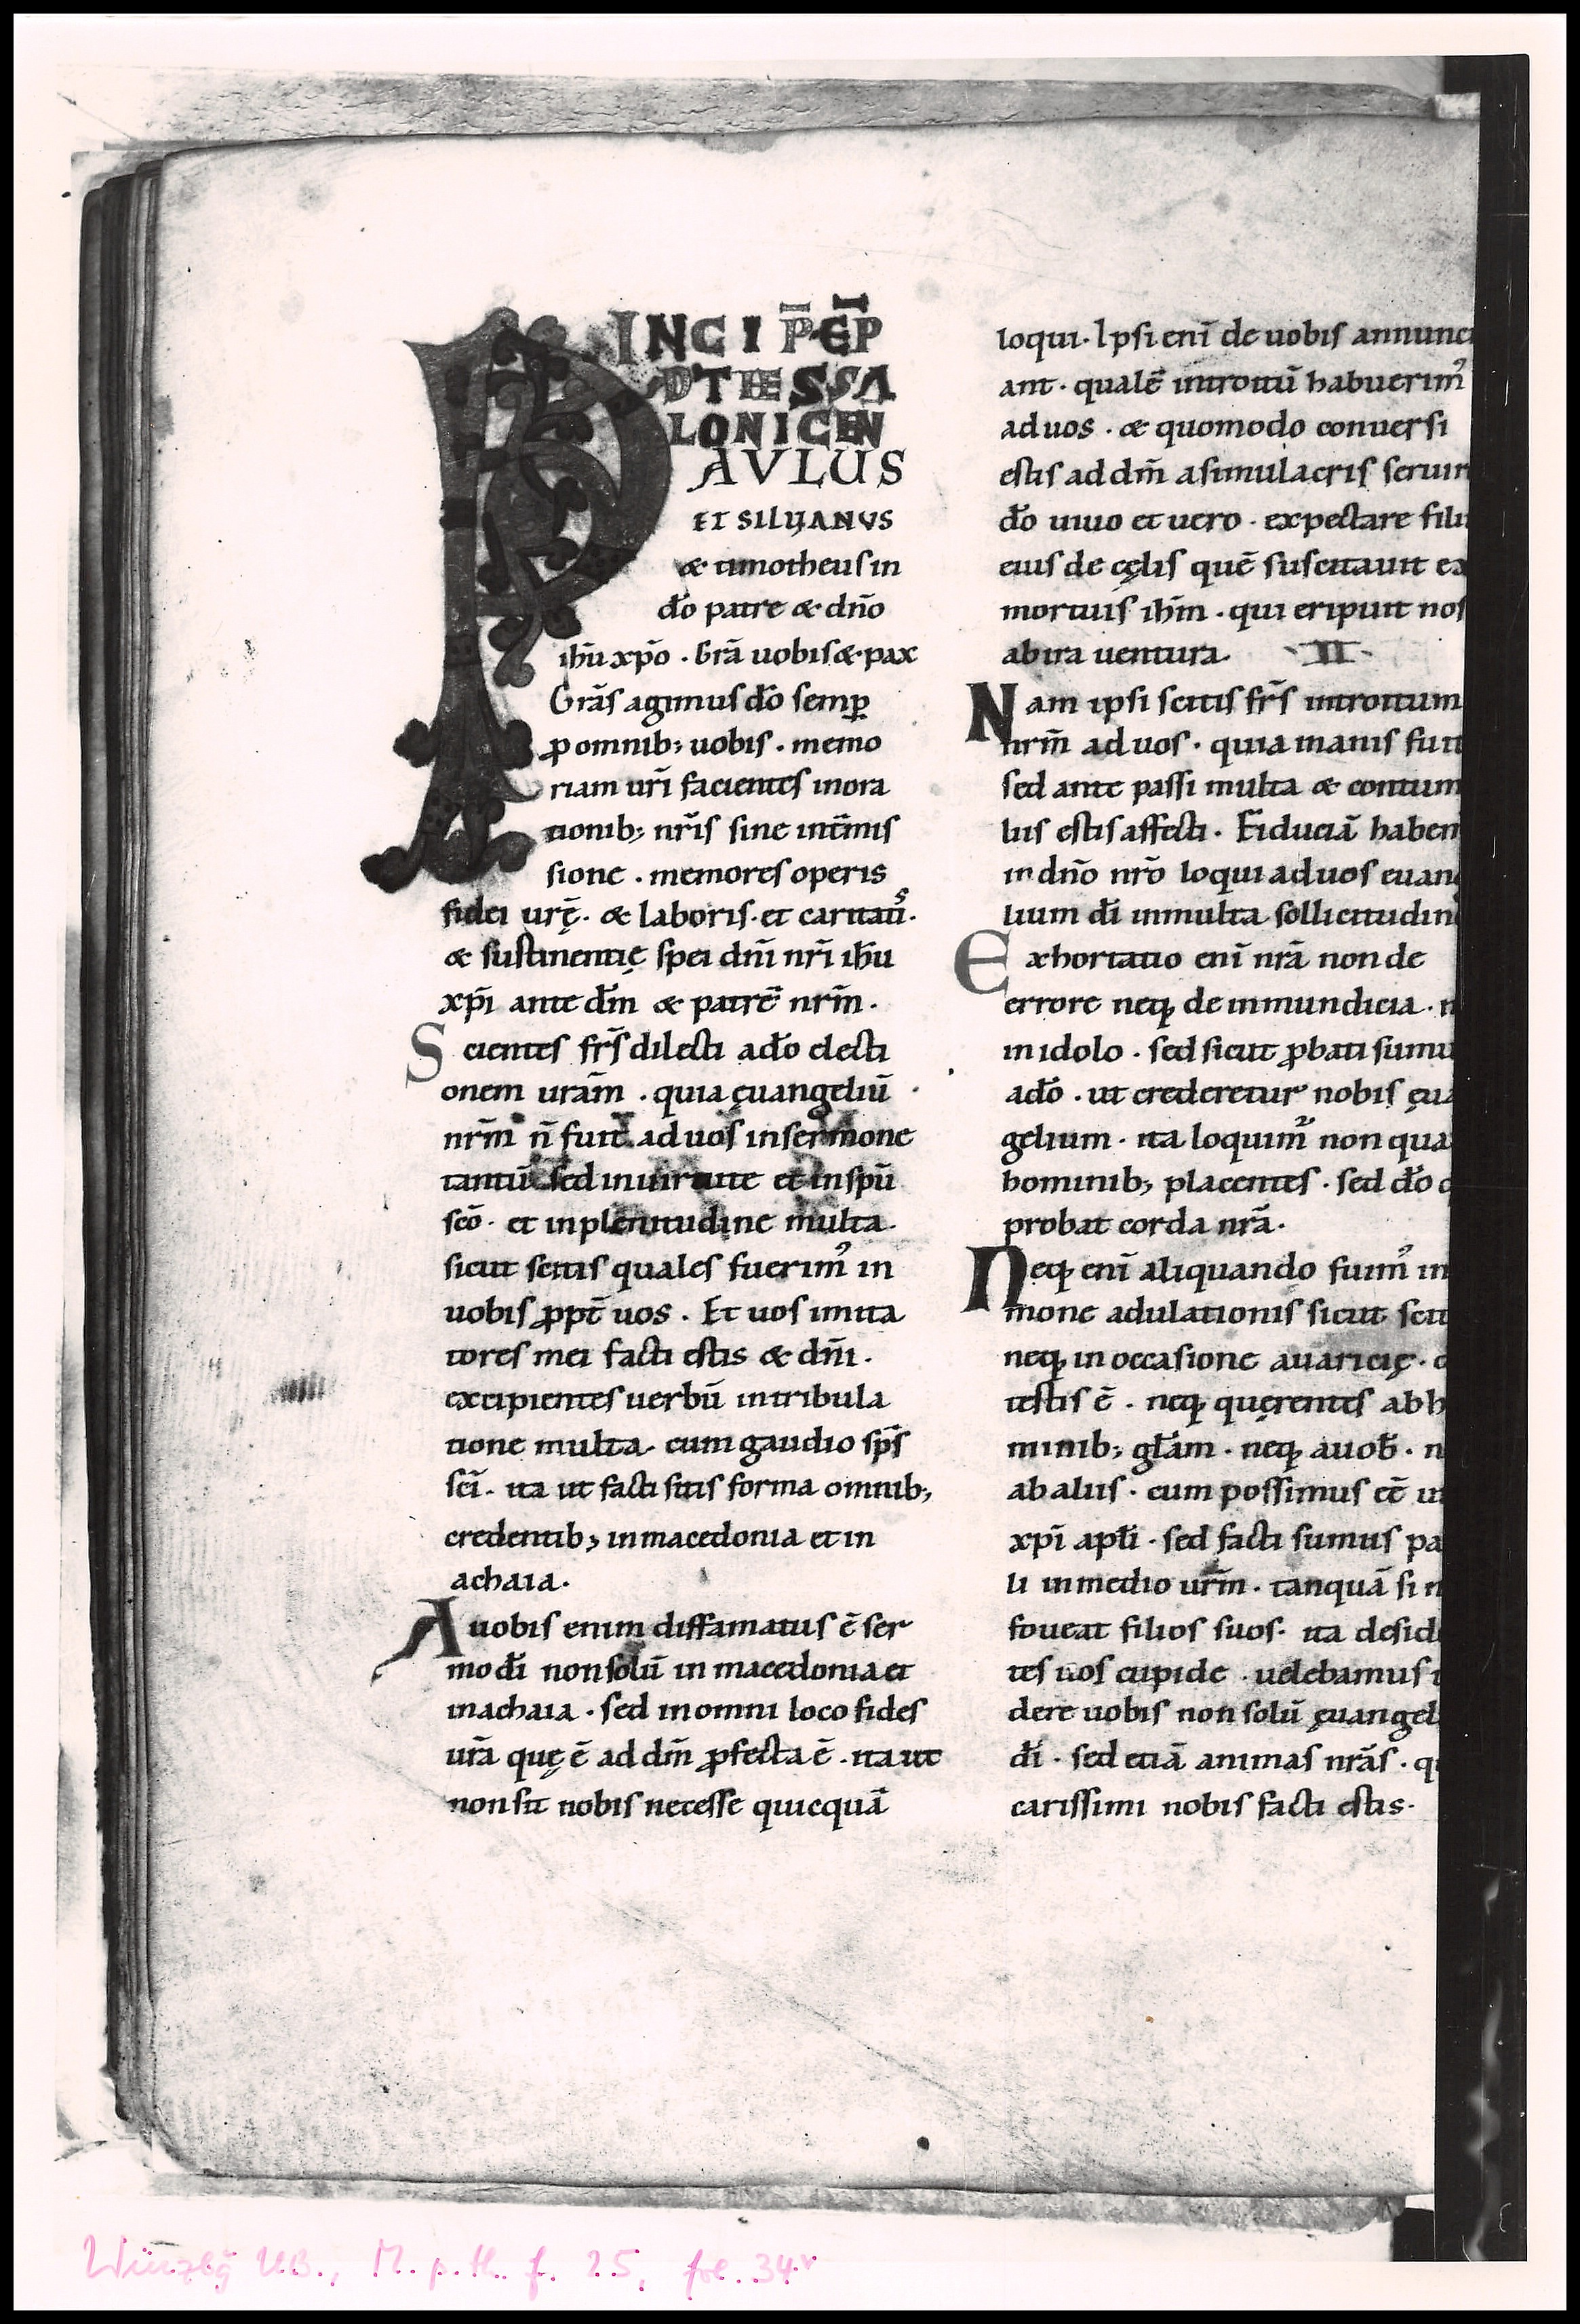 INCI P̄·EP̄
ADTHESSA
LONICEN
PAVLUS
ET SILVANVS
& timotheus in
do̅ patre & dn̅o
ihu̅ xp̅o . Gra̅ uobis & pax
Gra̅s agimus do̅ semꝑ
ꝓomnib; uobis . memo
riam ur̅i facientes inora
tionib; nr̅is sine int̅mis
sione . memores operis
fidei urę̅ . & laboris . et caritatis .
& sustinentię spei dn̅i nr̅i ihu̅
xp̅i ante dm̅ & patre̅ nr̅m .
Scientes fr̅s dilecti ado̅ electi
onem ura̅m . quia ęuangeliu̅
nr̅m n̅ fuit aduos insermone
tantu̅ sed inuirtute et inspu̅
sco̅ . et inplenitudine multa .
sicut scitis quales fuerim᾽ in
uobis ꝓpt̅ uos . Et uos imita
tores mei facti estis & dn̅i .
excipientes uerbu̅ intribula
tione multa . cum gaudio sp̅s
sci̅ . ita ut facti sitis forma omnib;
credentib; inmacedonia et in
achaia .
Auobis enim diffamatus e̅ ser
mo di̅ nonsolu̅ in macedonia et
inachaia . sed inomni loco fides
ura̅ quę e̅ ad dm̅ ꝓfecta e̅ . ita ut
nonsit nobis necesse quicqua̅
loqui . Ipsi eni̅ de uobis annunci
ant . quale̅ introitu̅ habuerim᾽
aduos . & quomodo conuersi
estis ad dm̅ asimulacris seruir
do̅ uiuo et uero . expectare fili
eius de cęlis que̅ suscitauit ex
mortuis ihm̅ . qui eripuit nos
abira uentura . · II ·
Nam ipsi scitis fr̅s introitum
nr̅m aduos . quia inanis fuit
sed ante passi multa & contum
liis estis affecti . Fiducia̅ haben
in dn̅o nr̅o loqui aduos euang
lium di̅ inmulta sollicitudin
Exhortatio eni̅ nra̅ non de
errore neq; de inmundicia . n
in idolo . sed sicut ꝓbati sumu
ado̅ . ut crederetur nobis ęua
gelium . ita loquim᾽ non qua
hominib; placentes . sed do̅ q
probat corda nra̅ .
Neq; eni̅ aliquando fuim᾽ in
mone adulationis sicut scit
neq; in occasione auaricię .
testis e̅ . neq; quęrentes ab h
minib; gla̅m . neq; auob̅ . n
ab aliis . cum possimus ee̅ ut
xp̅i apl̅i . sed facti sumus pa
li inmedio ur̅m . tanqua̅ si n
foueat filios suos . ita desid
tes uos cupide . uolebamus t
dere uobis non solu̅ ęuangel
di̅ . sed etia̅ animas nra̅s . q
carissimi nobis facti estis .
Würzbg UB., M. p. th. f. 25, fol. 34v